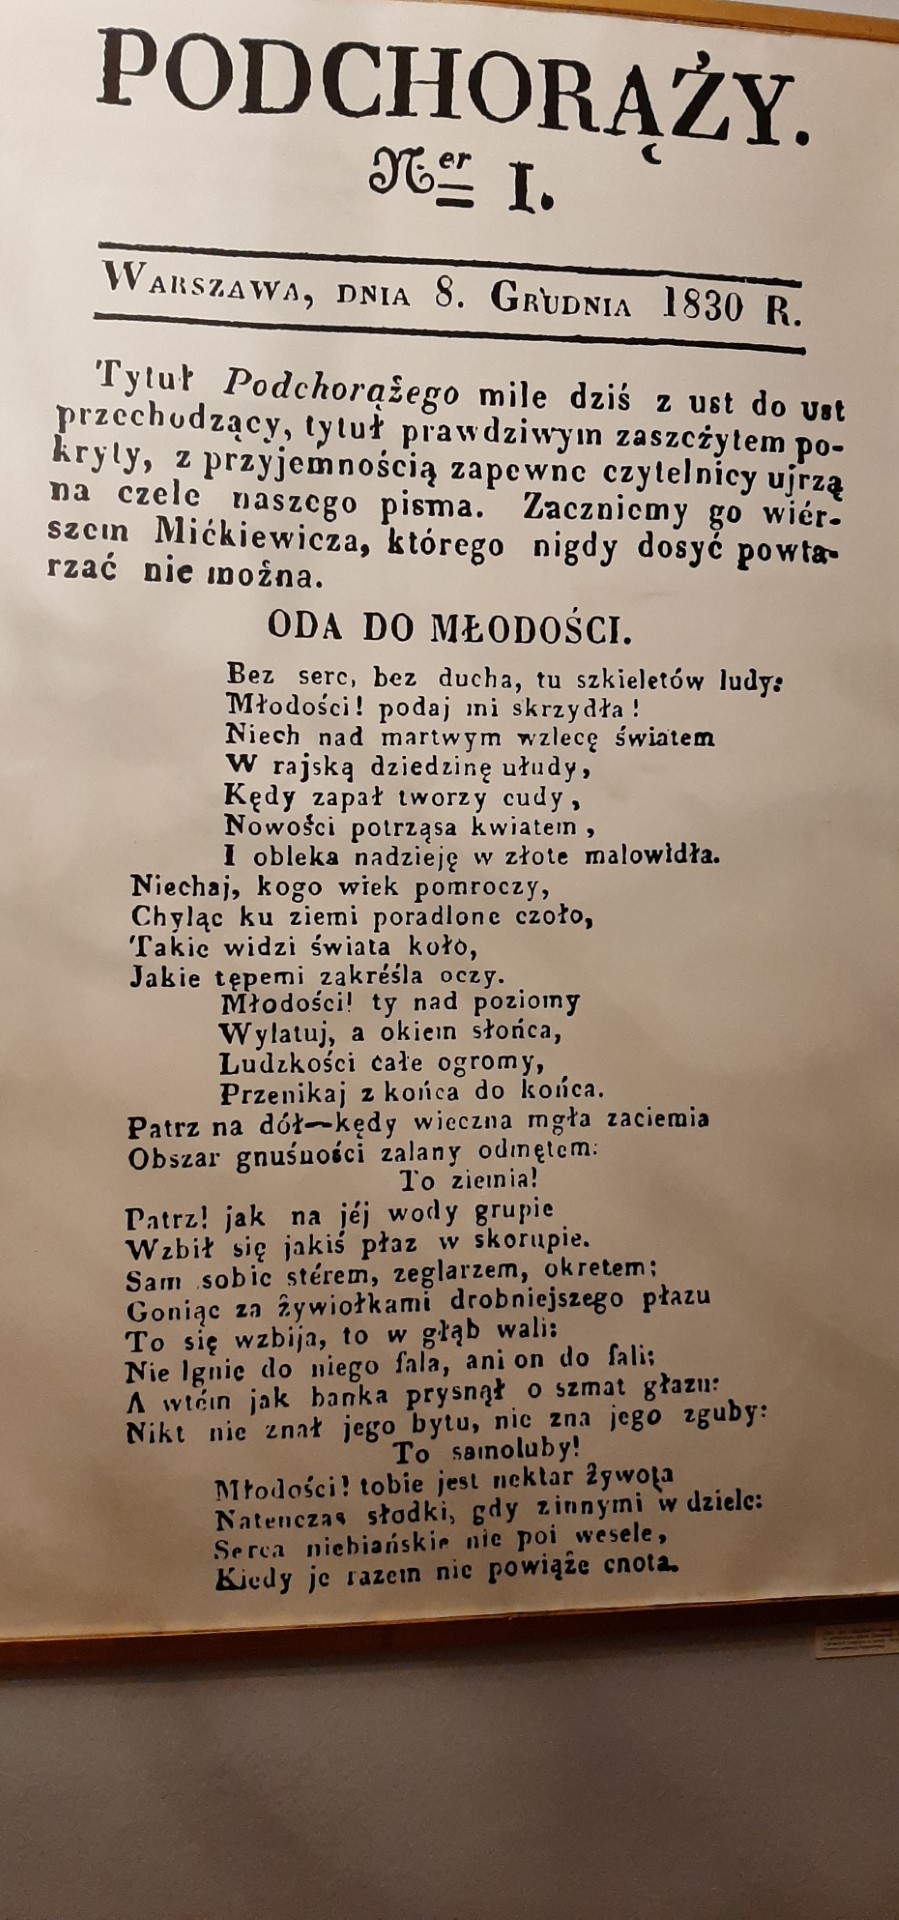 PODCHORĄŻY.
Ner I.
WARSZAWA, DNIA 8. GRUDNIA 1830 R.
Tytuł Podchorążego mile dziś z ust do ust
przechodzący, tytuł prawdziwym zaszczytem po-
kryty, z przyjemnością zapewne czytelnicy ujrzą
na czele naszego pisma. Zaczniemy go wiér-
szem Mićkiewicza, którego nigdy dosyć powta-
rzać nie można.
ODA DO MŁODOŚCI.
Bez serc, bez ducha, tu szkieletów ludy:
Młodości! podaj mi skrzydła!
Niech nad martwym wzlecę światem
W rajską dziedzinę ułudy,
Kędy zapał tworzy cudy,
Nowości potrząsa kwiatem,
I obleka nadzieję w złote malowidła.
Niechaj, kogo wiek pomroczy,
Chyląc ku ziemi poradlone czoło,
Takie widzi świata koło,
Jakie tępemi zakréśla oczy.
Młodości! ty nad poziomy
Wylatuj, a okiem słońca,
Ludzkości całe ogromy,
Przenikaj z końca do końca.
Patrz na dół—kędy wieczna mgła zaciemia
Obszar gnuśności zalany odmętem:
To ziemia!
Patrz! jak na jéj wody grupie
Wzbił się jakiś płaz w skorupie.
Sam sobie stérem, żeglarzem, okretem;
Goniąc za żywiołkami drobniejszego płazu
To się wzbija, to w głąb wali:
Nie lgnie do niego fala, ani on do fali;
A wtém jak banka prysnął o szmat głazu:
Nikt nie znał jego bytu, nie zna jego zguby:
To samoluby!
Młodości! tobie jest nektar żywota
Natenczas słodki, gdy z innymi w dziele:
Serca niebiańskie nie poi wesele,
Kiedy je razem nie powiąże cnota.